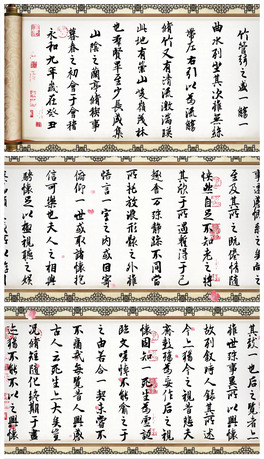 永和九年歲在癸丑
暮春之初會于會稽
山陰之蘭亭脩禊事
也羣賢畢至少長咸集
此地有崇山峻領茂林
脩竹又有清流激湍映
帶左右引以為流觴
曲水列坐其次雖無絲
竹管絃之盛一觴一
騁懷足以極視聽之娛
信可樂也夫人之相與
俯仰一世或取諸懷抱
悟言一室之內或因寄
所託放浪形骸之外雖
趣舍萬殊靜躁不同當
其欣於所遇暫得於己
快然自足不知老之將
至及其所之既惓情隨
猶不能不以之興懷
況脩短隨化終期於盡
古人云死生亦大矣豈
不痛哉每攬昔人興感
之由若合一契未嘗不
臨文嗟悼不能喻之於
懷固知一死生為虛誕
齊彭殤為妄作後之視
今亦由今之視昔悲夫
故列敘時人錄其所述
雖世殊事異所以興懷
其致一也後之攬者